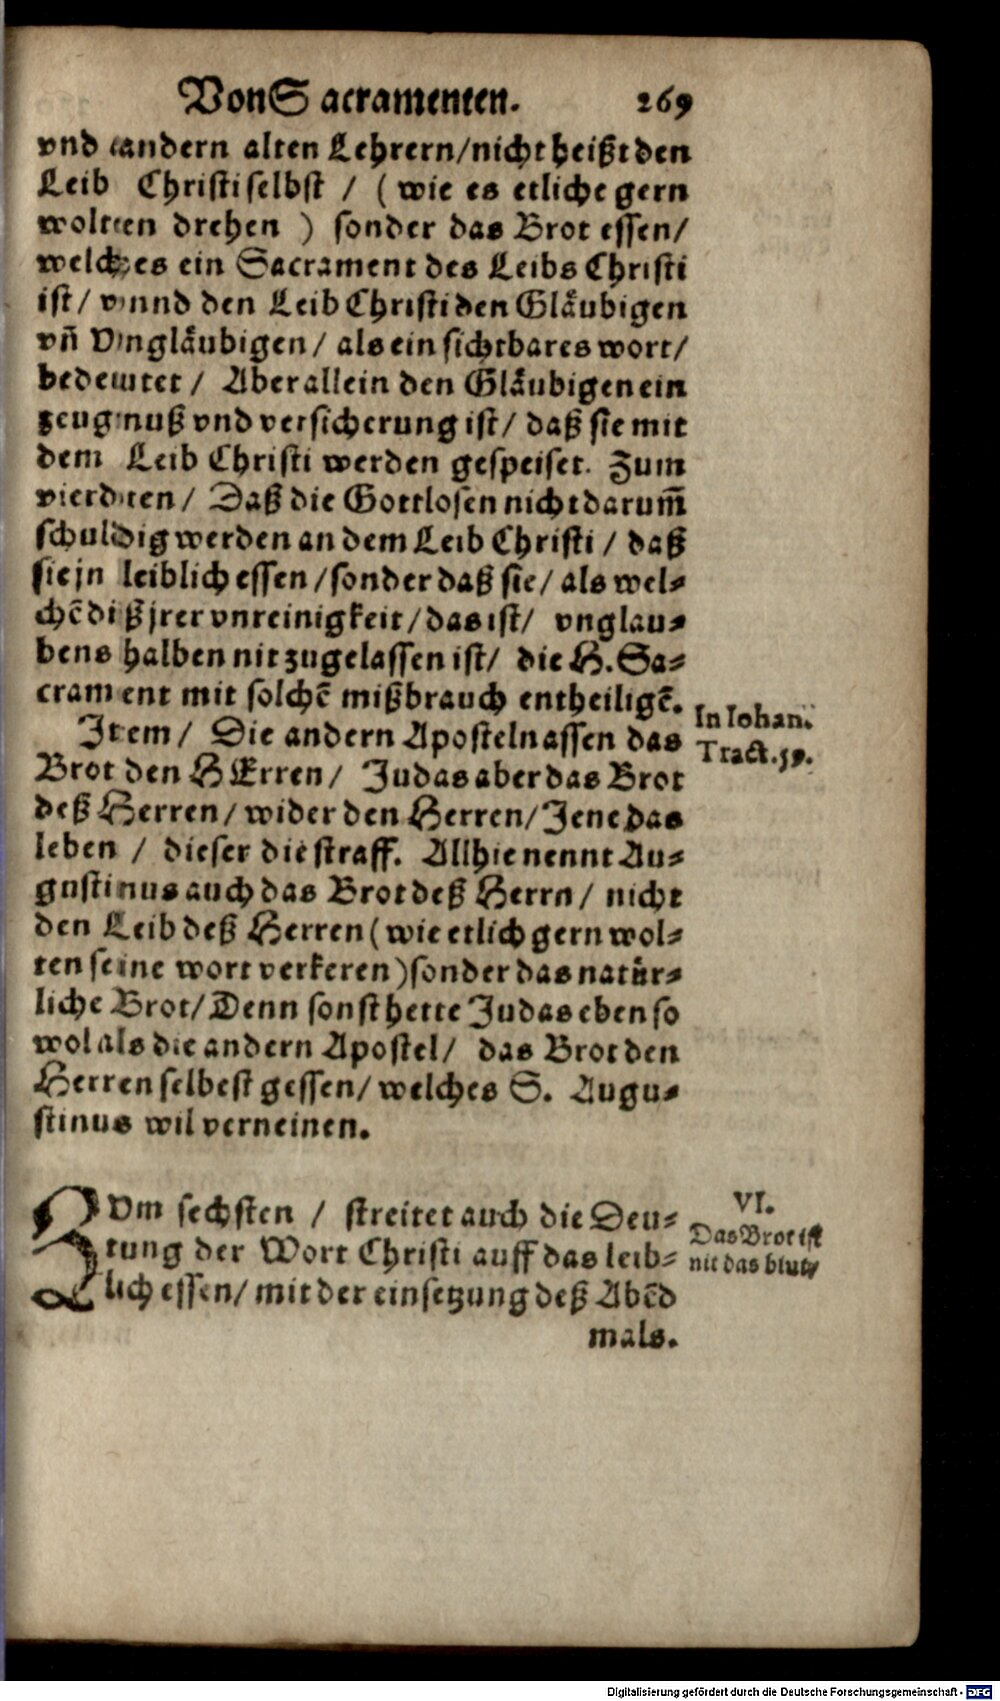 Von Sacramenten. 269
vnd andern alten Lehrern/nicht heißt den
Leib Christi selbst / ( wie es etliche gern
wolten drehen ) sonder das Brot essen/
welches ein Sacrament des Leibs Christi
ist/ vnnd den Leib Christi den Glåubigen
vñ Vnglåubigen/ als ein sichtbares wort/
bedeutet / Aber allein den Glåubigen ein
zeugnuß vnd versicherung ist/ daß sie mit
dem Leib Christi werden gespeiset. Zum
vierdten/ Daß die Gottlosen nicht darum̃
schuldig werden an dem Leib Christi / daß
sie jn leiblich essen/sonder daß sie/ als wel-
chẽ diß jrer vnreinigkeit/das ist/ vnglau-
bens halben nit zugelassen ist/ die H. Sa-
crament mit solchẽ mißbrauch entheiligẽ.
In Iohan.
Tract.59.
Item/ Die andern Apostel nassen das
Brot den HErren/ Judas aber das Brot
deß Herren/wider den Herren/Jene das
leben / dieser die straff. Allhie nennt Au-
gustinus auch das Brot deß Herrn/ nicht
den Leib deß Herren (wie etlich gern wol-
ten seine wort verkeren) sonder das natůr-
liche Brot/Denn sonst hette Judas eben so
wol als die andern Apostel/ das Brot den
Herren selbest gessen/welches S. Augu-
stinus wil verneinen.
ZVm sechsten / streitet auch die Deu-
tung der Wort Christi auff das leib-
lich essen/ mit der einsetzung deß Abẽd
VI.
Das Brot ist
nit das blut/
mals.
Digitalisierung gefördert durch die Deutsche Forschungsgemeinschaft - DFG